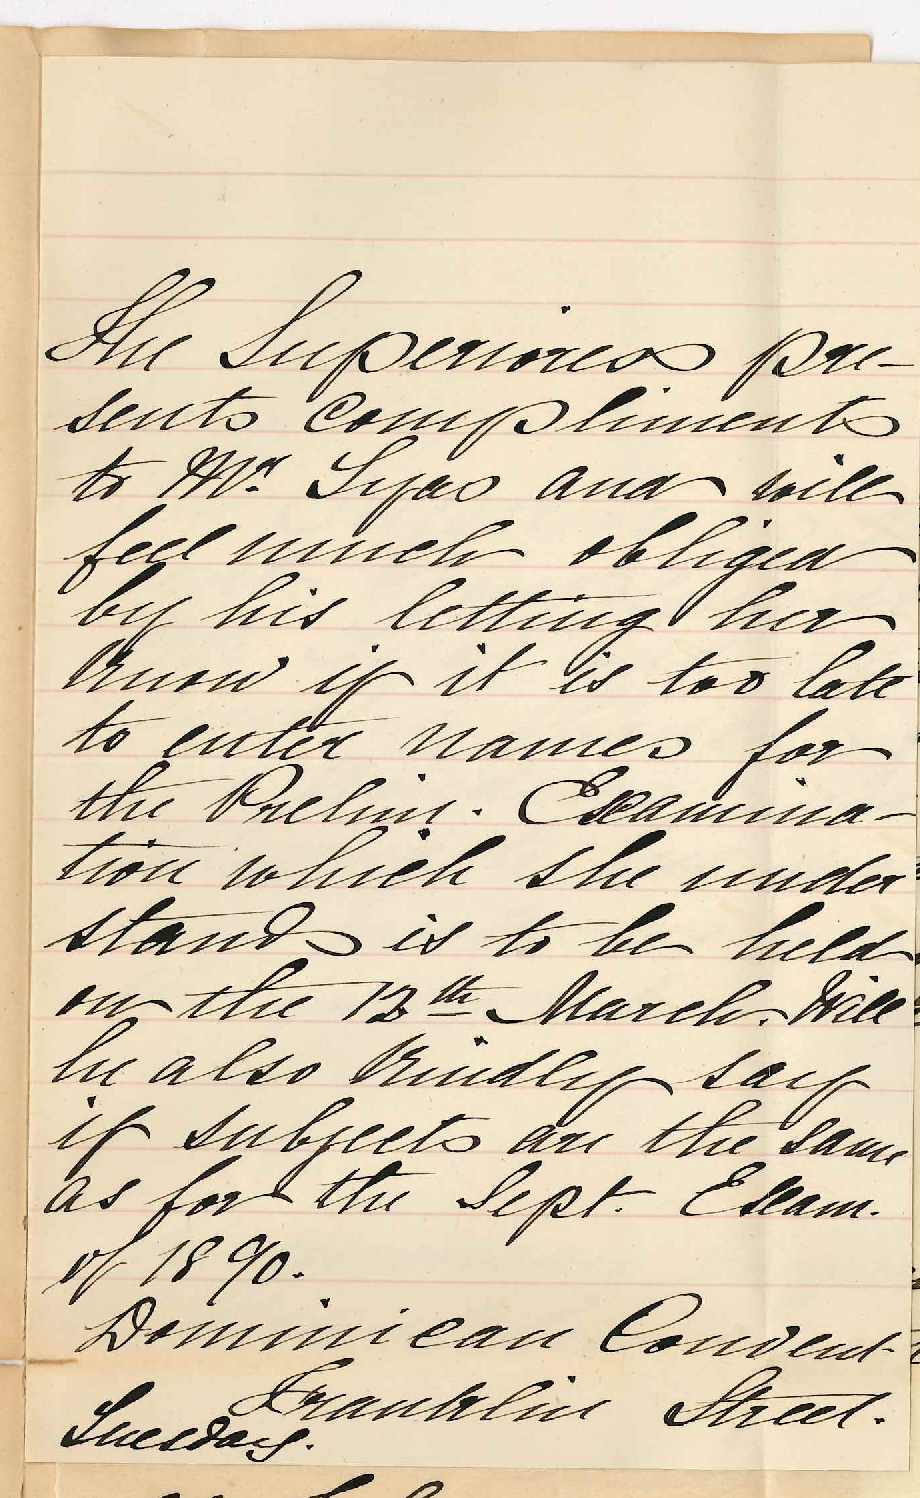 The Superioress pre-
sents compliments
to Mr. Tyas and will
feel much obliged
by his letting her
know if it is too late
to enter names for
the Prelim. Examina-
tion which she under
stands is to be held
on the 12th March. Will
he also kindly say
if subjects are the same
as for the Sept. Exam.
of 1890.
Dominican Convent
Franklin Street.
Tuesday.